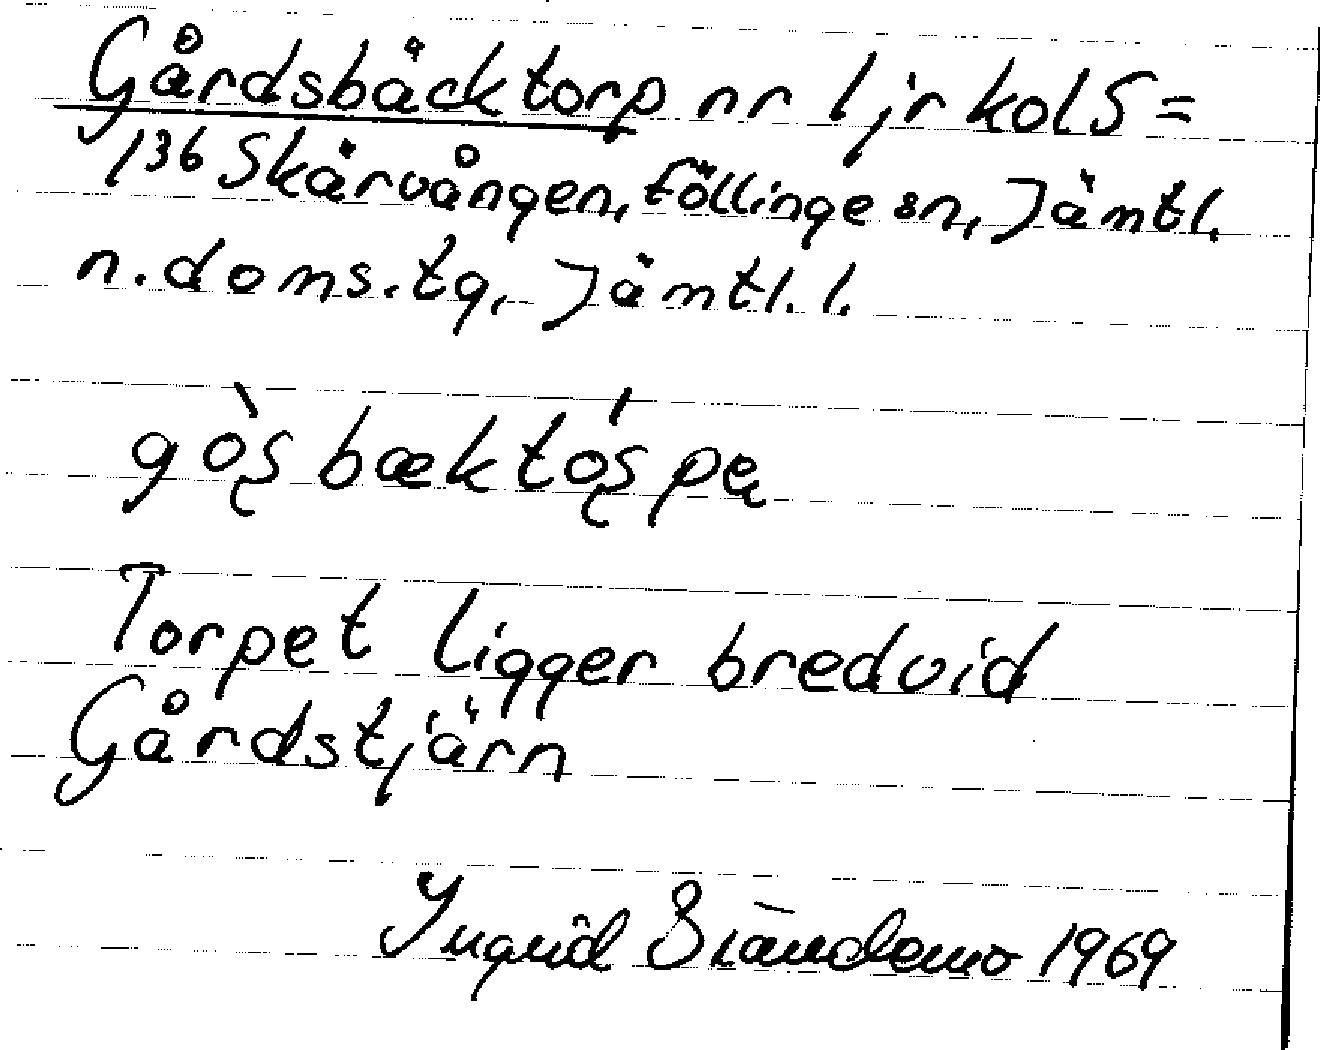 Gårdsbäcktorp nr 1 jr kol S =
136 Skärvången, Föllinge sn, Jämtl.
n. doms. tg, Jämtl. l.
gò̀ʂbæktóʂpę
Torpet ligger bredvid
Gårdstjärn
Ingrid 1969